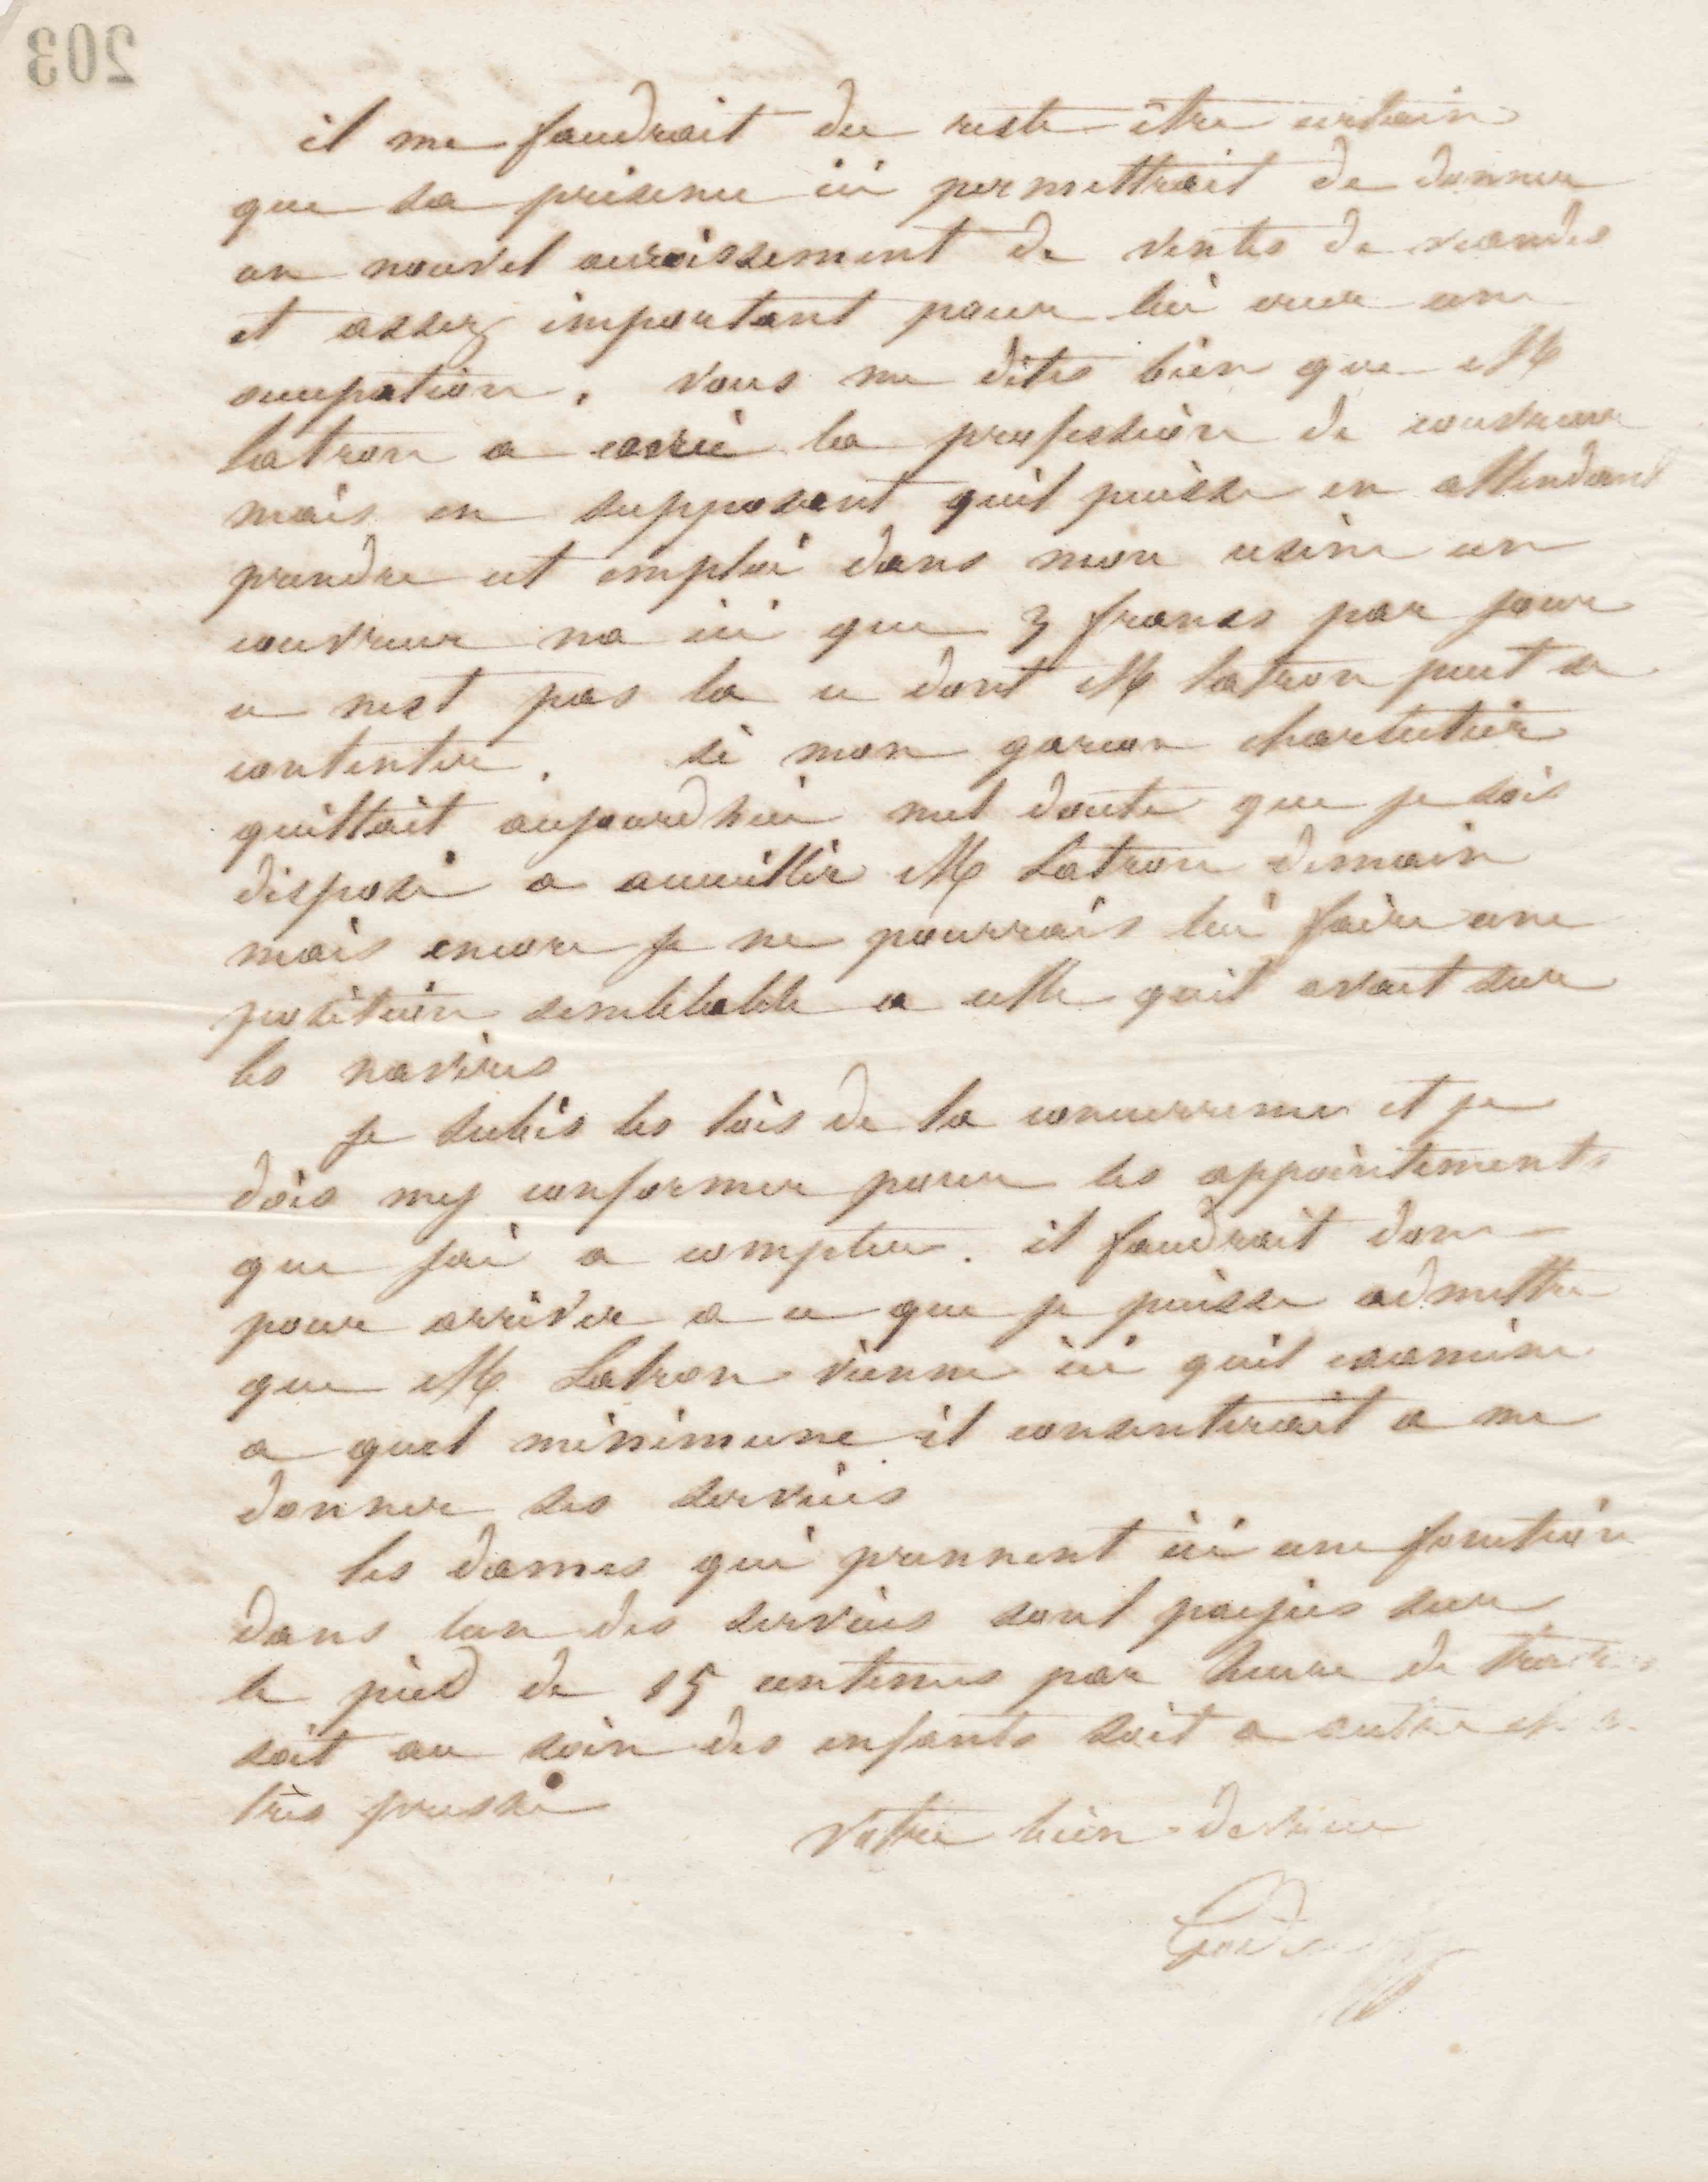 203
il me faudrait du reste être certain
que sa présence ici permettrait de donner
un nouvel accroissement de ventes de viandes
et assez important pour lui créer une
occupation. Vous me dites bien que M
Latron a la profession de couvreur
mais en supposant quil puisse en attendant
prendre cet emploi dans mon usine un
couvreur na ici que 3 francs par jour
ce nest pas la ce dont M Latron peut se
contenter. si mon garcon charcutier
quittait aujourdhui nul doute que je sois
disposé a accueillir M Latron demain
mais encore je ne pourrais lui faire une
position semblable a celle quil avait sur
les navires
je subis les lois de la concurrence et je
dois my conformer pour les appointements
que jai a compter. il faudrait donc
pour arriver a ce que je puisse admettre
que M Latron vienne ici quil examine
a quel minimum il consentirait a me
donner ses services
les dames qui prennent ici une fonction
dans lun des services sont payées sur
le pied de 15 centimes par heure de
soit au soin des enfants soit a autre
très pressé
Votre bien dévoué
Godin